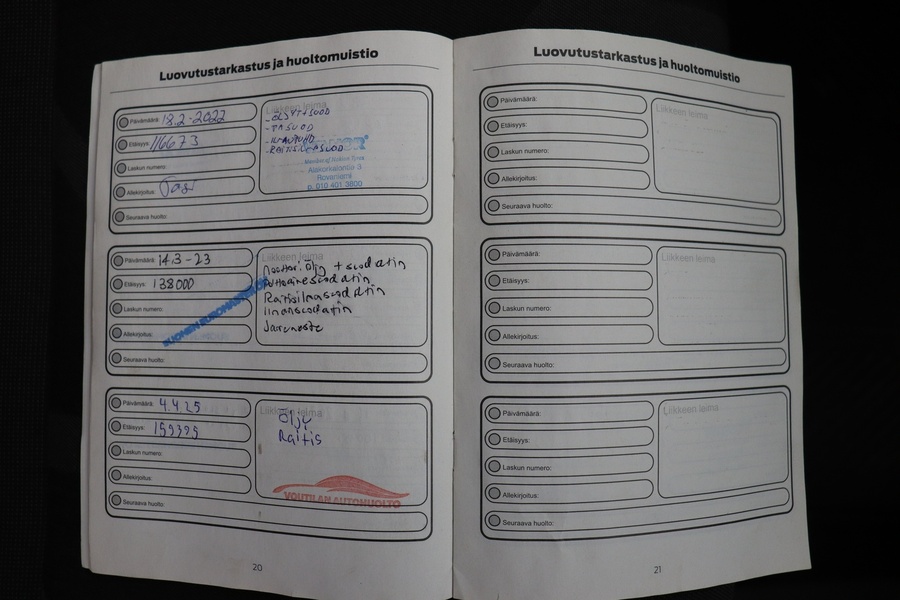 Luovutustarkastus ja huoltomuistio
Päivämäärä: 18.2-2022
Etäisyys: 116673
Laskun numero:
Allekirjoitus:
Seuraava huolto:
Liikkeen leima
Members of Nokian Tyres
Alakorkalontie 3
Rovaniemi
p. 010 401 3800
Päivämäärä: 14.3-23
Etäisyys: 138000
Laskun numero:
Allekirjoitus:
Seuraava huolto:
Liikkeen leima
Moottori öljy + suodatin
Polttoainesuodatin
Raitisilmasuodatin
Ilmansuodatin
Jarruneste
Päivämäärä: 4.4.25
Etäisyys: 159995
Laskun numero:
Allekirjoitus:
Seuraava huolto:
Liikkeen leima
Öljy
Raitis
VOUTILAN AUTOHUOLTO
20
Luovutustarkastus ja huoltomuistio
Päivämäärä:
Etäisyys:
Laskun numero:
Allekirjoitus:
Seuraava huolto:
Liikkeen leima
Päivämäärä:
Etäisyys:
Laskun numero:
Allekirjoitus:
Seuraava huolto:
Liikkeen leima
Päivämäärä:
Etäisyys:
Laskun numero:
Allekirjoitus:
Seuraava huolto:
Liikkeen leima
21